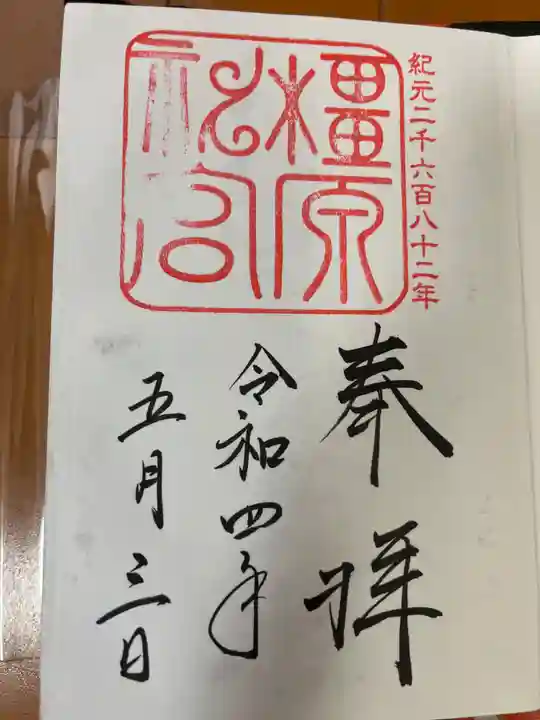 紀元二千六百八十二年
橿原
神宮
奉拝
令和四年
五月三日